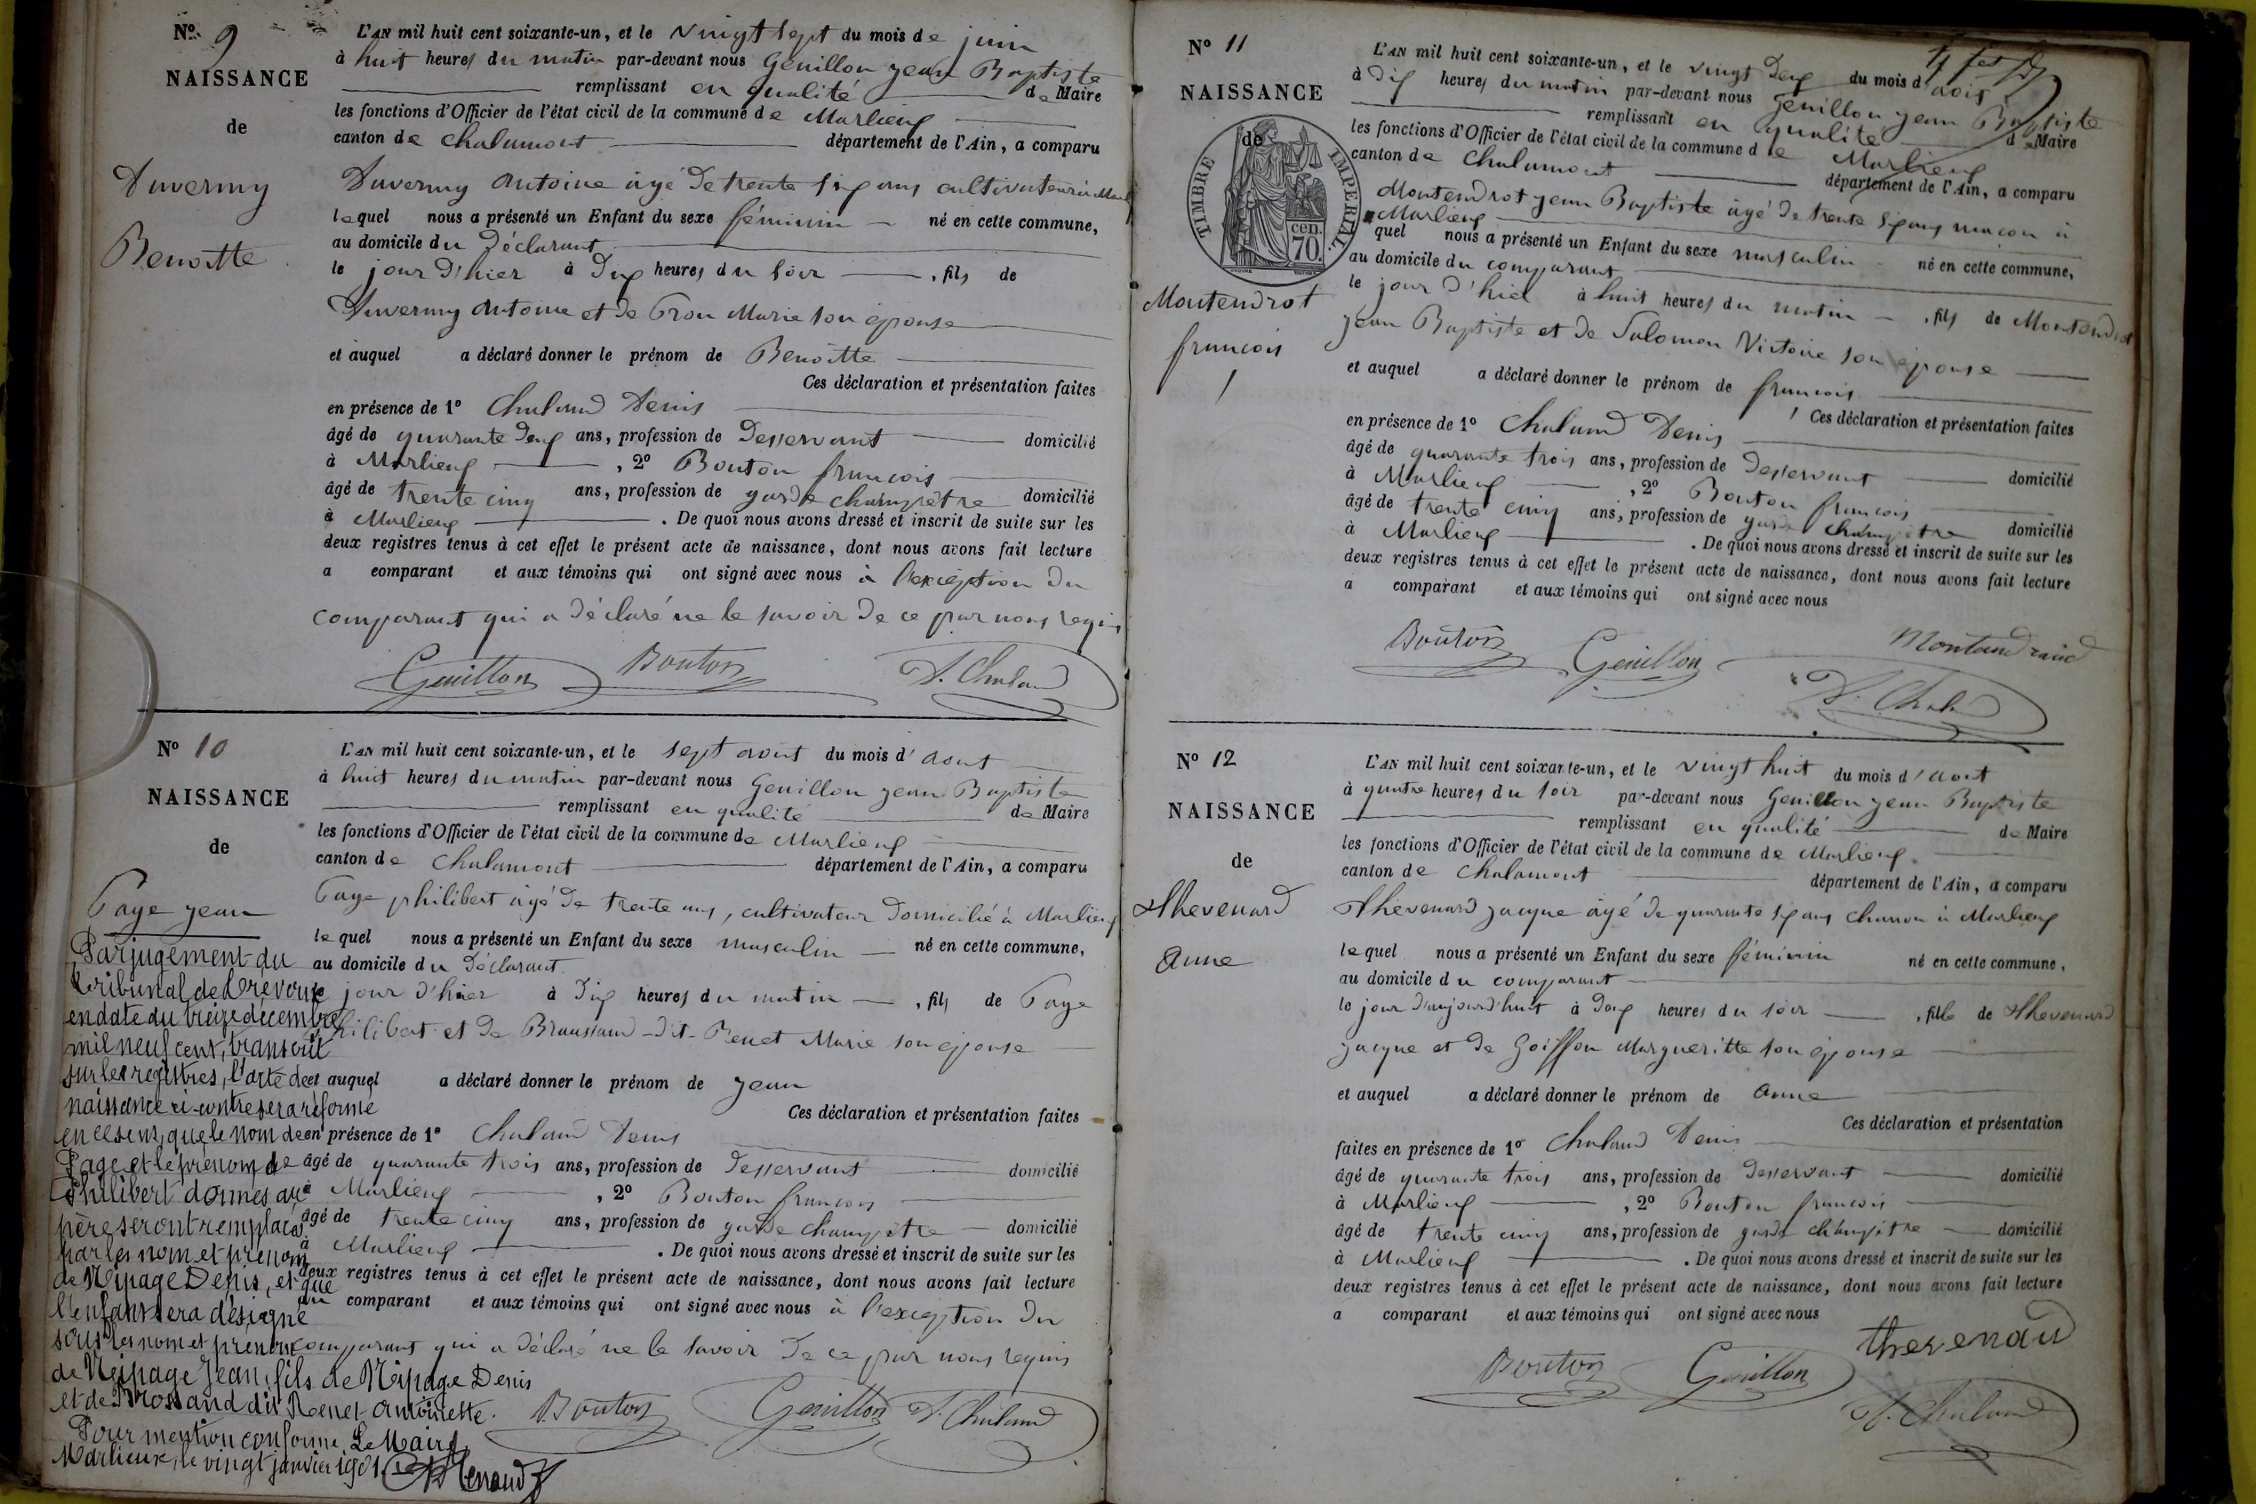 N° 9
NAISSANCE
de
Duvernay
Benoitte
L'AN mil huit cent soixante-un, et le vingt sept du mois de juin
à huit heures du matin par-devant nous Genillon jean Baptiste
remplissant en qualité de Maire
les fonctions d'Officier de l'état civil de la commune de Marlieux
canton de Chalamont département de l'Ain, a comparu
Antoine âgé de trente six ans cultivateur à
lequel nous a présenté un Enfant du sexe féminin né en cette commune,
au domicile du Déclarant
le jour d'hier à Dix heures du soir , fils de
Antoine et de Marie son épouse
et auquel a déclaré donner le prénom de Benoitte
Ces déclaration et présentation faites
en présence de 1° Chaland Denis
âgé de quarante deux ans, profession de Desservant domicilié
à Marlieux , 2° Bouton francois
âgé de trente cinq ans, profession de garde champêtre domicilié
à Marlieux . De quoi nous avons dressé et inscrit de suite sur les
deux registres tenus à cet effet le présent acte de naissance, dont nous avons fait lecture
a comparant et aux témoins qui ont signé avec nous à l'exception du
comparant qui a déclaré ne le savoir de ce par nous requis
Genillon Bouton D. Chaland
N° 10
NAISSANCE
de
Page jean
Par jugement du
tribunal de Trévoux
en date du treize décembre
mil neuf cent, transcrit
sur les registres, l'acte de
naissance ci-contre sera réformé
en ce sens, que le nom de
Page et le prénom de
Philibert donnés au
père seront remplacés
par les nom et prénom
de Nipage Denis, et que
l'enfant sera désigné
sous les nom et prénom
de Nipage Jean, fils de Nipage Denis
et de Brossand dit Renet Antoinette.
Pour mention conforme, Le Maire,
Marlieux, le vingt janvier 1901
L'AN mil huit cent soixante-un, et le sept aout du mois d'aout
à huit heures du matin par-devant nous Genillon jean Baptiste
remplissant en qualité de Maire
les fonctions d'Officier de l'état civil de la commune de Marlieux
canton de Chalamont département de l'Ain, a comparu
Page philibert âgé de trente ans, cultivateur domicilié à Marlieux
lequel nous a présenté un Enfant du sexe masculin né en cette commune,
au domicile du Déclarant
le jour d'hier à Dix heures du matin , fils de Page
Philibert et de Braussand-dit-Renet Marie son épouse
et auquel a déclaré donner le prénom de jean
Ces déclaration et présentation faites
en présence de 1° Chaland Denis
âgé de quarante trois ans, profession de Desservant domicilié
à Marlieux , 2° Bouton francois
âgé de trente cinq ans, profession de garde champêtre domicilié
à Marlieux . De quoi nous avons dressé et inscrit de suite sur les
deux registres tenus à cet effet le présent acte de naissance, dont nous avons fait lecture
au comparant et aux témoins qui ont signé avec nous à l'exception du
comparant qui a déclaré ne le savoir de ce par nous requis
Bouton Genillon D. Chaland
N° 11
NAISSANCE
de
TIMBRE IMPERIAL.
70 cen.
Montendrot
francois
L'AN mil huit cent soixante-un, et le vingt Deux du mois d'aout
à Dix heures du matin par-devant nous Genillon jean Baptiste
remplissant en qualité de Maire
les fonctions d'Officier de l'état civil de la commune de Marlieux
canton de Chalamont département de l'Ain, a comparu
Montendrot jean Baptiste âgé de trente six ans macon à
Marlieux
quel nous a présenté un Enfant du sexe masculin né en cette commune,
au domicile du comparant
le jour d'hier à huit heures du matin , fils de Montendrot
jean Baptiste et de Salomon Victoire son épouse
et auquel a déclaré donner le prénom de francois
Ces déclaration et présentation faites
en présence de 1° Chaland Denis
âgé de quarante trois ans, profession de Desservant domicilié
à Marlieux , 2° Bouton francois
âgé de trente cinq ans, profession de garde champêtre domicilié
à Marlieux . De quoi nous avons dressé et inscrit de suite sur les
deux registres tenus à cet effet le présent acte de naissance, dont nous avons fait lecture
a comparant et aux témoins qui ont signé avec nous
Bouton Genillon
D. Chaland
N° 12
NAISSANCE
de
Thevenard
Anne
L'AN mil huit cent soixante-un, et le vingt huit du mois d'aout
à quatre heures du soir par-devant nous Genillon jean Baptiste
remplissant en qualité de Maire
les fonctions d'Officier de l'état civil de la commune de Marlieux
canton de Chalamont département de l'Ain, a comparu
Thevenard jacque âgé de quarante six ans charron à Marlieux
lequel nous a présenté un Enfant du sexe féminin né en cette commune,
au domicile du comparant
le jour d'aujourd'huit à Deux heures du soir , fille de Thevenard
jacque et de Goiffon Margueritte son épouse
et auquel a déclaré donner le prénom de anne
Ces déclaration et présentation
faites en présence de 1° Chaland Denis
âgé de quarante trois ans, profession de Desservant domicilié
à Marlieux , 2° Bouton francois
âgé de trente cinq ans, profession de garde champêtre domicilié
à Marlieux . De quoi nous avons dressé et inscrit de suite sur les
deux registres tenus à cet effet le présent acte de naissance, dont nous avons fait lecture
a comparant et aux témoins qui ont signé avec nous
thevenard
Bouton Genillon
D. Chaland